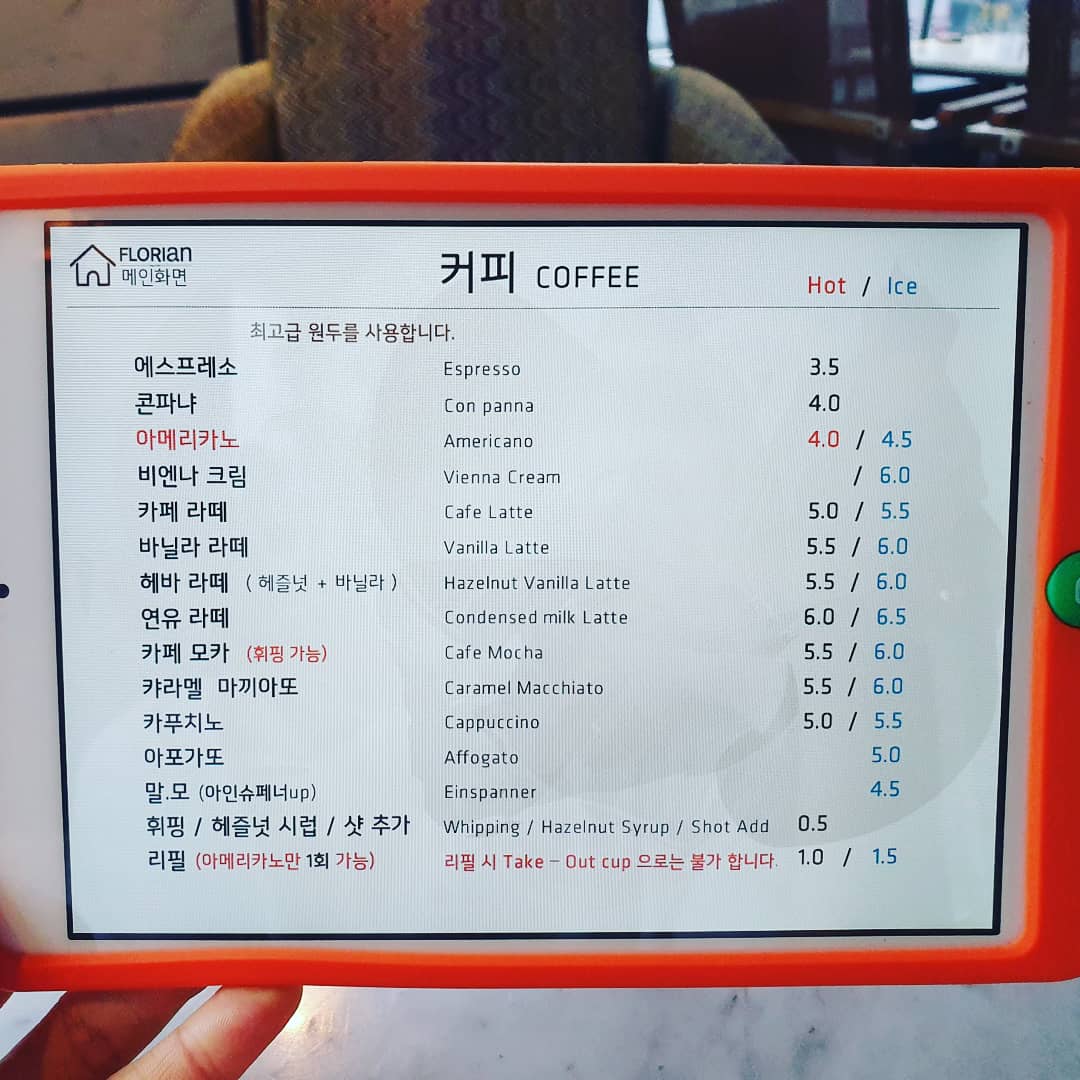 FLORIAN
메인화면
커피 COFFEE
Hot / Ice
최고급 원두를 사용합니다.
에스프레소 Espresso 3.5
콘파냐 Con panna 4.0
아메리카노 Americano 4.0 / 4.5
비엔나 크림 Vienna Cream / 6.0
카페 라떼 Cafe Latte 5.0 / 5.5
바닐라 라떼 Vanilla Latte 5.5 / 6.0
헤바 라떼 ( 헤즐넛 + 바닐라 ) Hazelnut Vanilla Latte 5.5 / 6.0
연유 라떼 Condensed milk Latte 6.0 / 6.5
카페 모카 (휘핑 가능) Cafe Mocha 5.5 / 6.0
캬라멜 마끼아또 Caramel Macchiato 5.5 / 6.0
카푸치노 Cappuccino 5.0 / 5.5
아포가또 Affogato 5.0
말.모 (아인슈페너up) Einspanner 4.5
휘핑 / 헤즐넛 시럽 / 샷 추가 Whipping / Hazelnut Syrup / Shot Add 0.5
리필 (아메리카노만 1회 가능) 리필 시 Take - Out cup 으로는 불가 합니다. 1.0 / 1.5